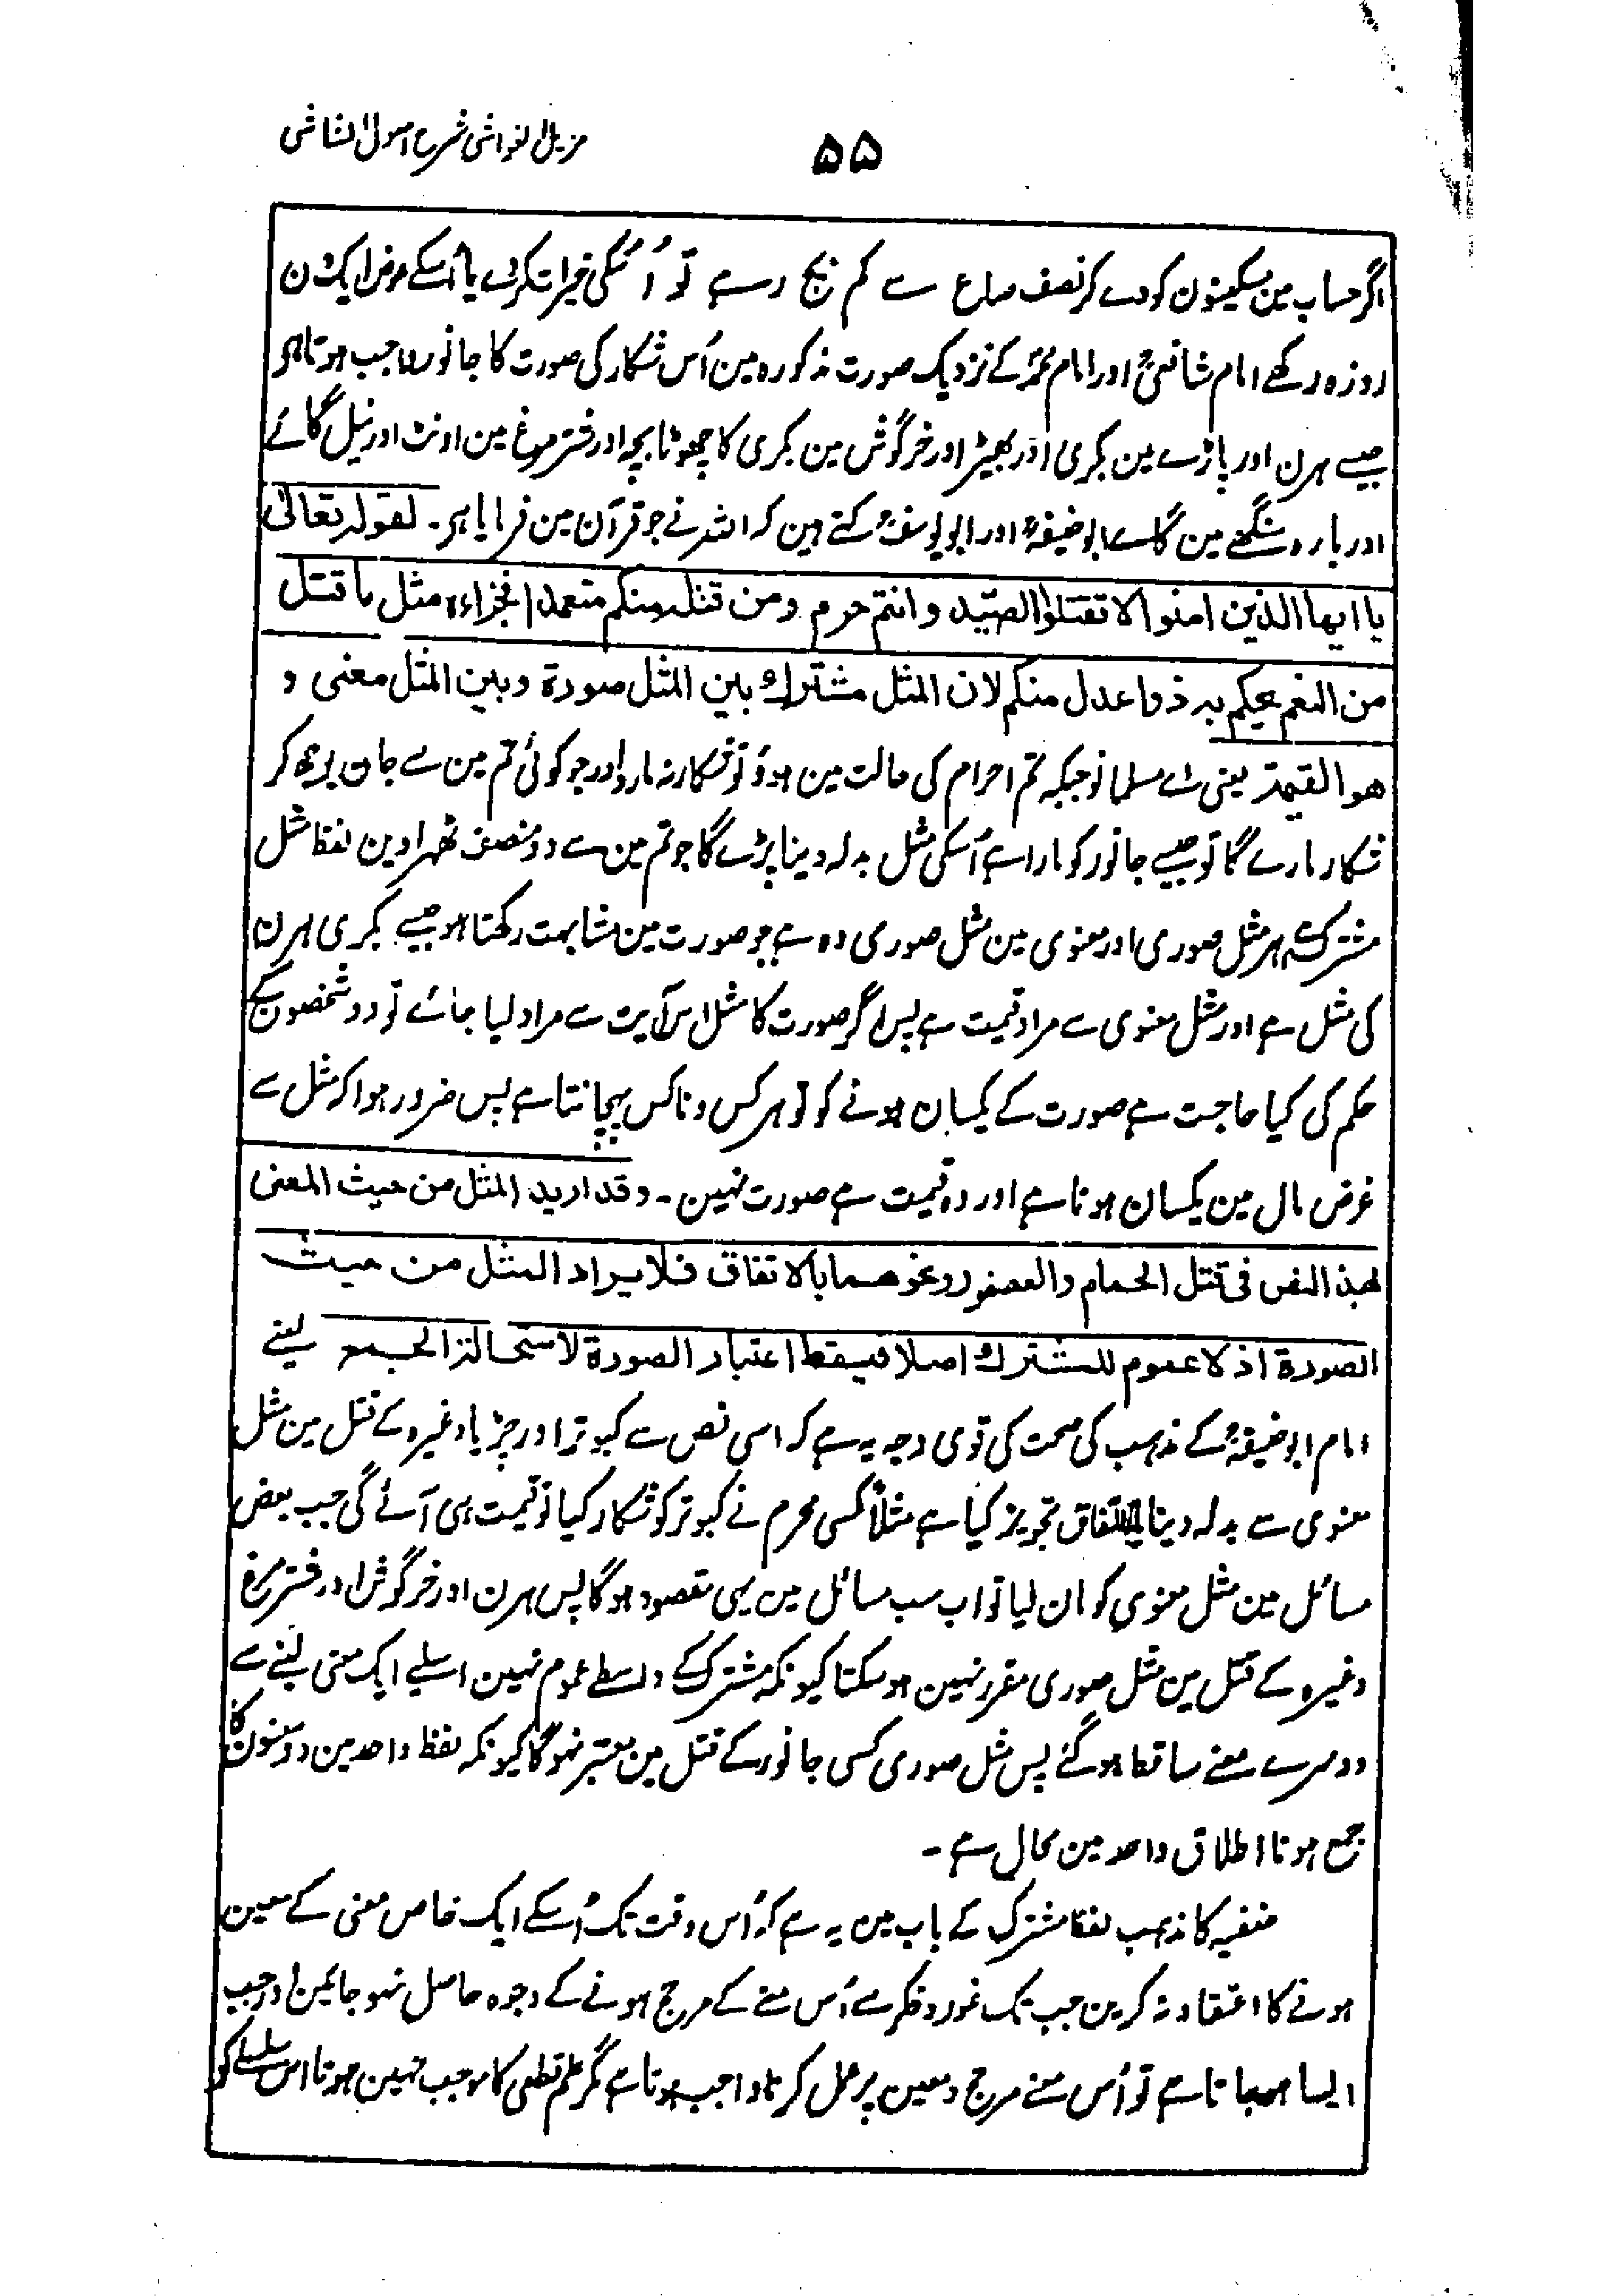 ۵۵
مزیل الغواشی شرح اصول الشاشی
اگر حساب مین مسکینون کو دے کر نصف صاع سے کم بچ رہے تو اُسکی خیرات کردے یا اُسکے عوض ایک دن
روزہ رکھے امام شافعیؒ اور امام محمدؒ کے نزدیک صورت مذکورہ مین اُس شکار کی صورت کا جانور واجب ہوتا ہی
جیسے ہرن اور پاڑے مین بکری اور بھیڑ اور خرگوش مین بکری کا چھوٹا بچہ اور شتر مرغ مین اونٹ اور نیل گائے
اور بارہ سنگھے مین گاے ابوحنیفہؒ اور ابویوسفؒ کہتے ہین کہ اللہ نے جو قرآن مین فرمایا ہی۔ لقولہ تعالیٰ
یا ایھا الذین امنوا لا تقتلوا الصید و انتم حرم ومن قتلہ منکم متعمدا فجزاء مثل ما قتل
من النعم یحکم بہ ذوا عدل منکم لان المثل مشترک بین المثل صورة وبین المثل معنی و
ھو القیمة یعنی اے مسلمانو جبکہ تم احرام کی حالت مین ہو تو شکار نہ مارو اور جو کوئی تم مین سے جان بوجھ کر
شکار مارے گا تو جیسے جانور کو مارا ہے اُسکی مثل بدلہ دینا پڑے گا جو تم مین سے دو منصف ٹھہرا دین لفظ مثل
مشترک ہی مثل صوری اور معنوی مین مثل صوری وہ ہے جو صورت مین مشابہت رکھتا ہو جیسے بکری ہرن
کی مثل ہے اور مثل معنوی سے مراد قیمت ہے پس اگر صورت کا مثل اس آیت سے مراد لیا جائے تو دو شخصون کے
حکم کی کیا حاجت ہے صورت کے یکسان ہونے کو تو ہر کس و ناکس پہچانتا ہے پس ضرور ہوا کہ مثل سے
غرض مال مین یکسان ہونا ہے اور وہ قیمت ہے صورت نہین۔ وقد ارید المثل من حیث المعنی
بھذا النص فی قتل الحمام والعصفور ونحوھما بالاتفاق فلا یراد المثل من حیث
الصورة اذ لا عموم للمشترک اصلا فیسقط اعتبار الصورة لاستحالة الجمع یعنے
امام ابوحنیفہؒ کے مذہب کی صحت کی قوی وجہ یہ ہے کہ اسی نص سے کبوتر اور چڑیا وغیرہ کے قتل مین مثل
معنوی سے بدلہ دینا بالاتفاق تجویز کیا ہے مثلاً کسی محرم نے کبوتر کو شکار کیا تو قیمت ہی آئے گی جب بعض
مسائل مین مثل معنوی کو مان لیا تو اب سب مسائل مین یہی مقصود ہوگا پس ہرن اور خرگوش اور شتر مرغ
وغیرہ کے قتل مین مثل صوری مقرر نہین ہو سکتا کیونکہ مشترک کے واسطے عموم نہین اسلیے ایک معنی لینے سے
دوسرے معنے ساقط ہو گئے پس مثل صوری کسی جانور کے قتل مین معتبر نہوگا کیونکہ لفظ واحد مین دو معنون کا
جمع ہونا اطلاق واحد مین محال ہے۔
حنفیہ کا مذہب لفظ مشترک کے باب مین یہ ہے کہ اُس وقت تک اُسکے ایک خاص معنی کے معین
ہونے کا اعتقاد نہ کرین جب تک غور و فکر سے اُس معنے کے مرجح ہونے کے وجوہ حاصل نہو جائین اور جب
ایسا ہو جاتا ہے تو اُس معنے مرجح و معین پر عمل کرنا واجب ہوتا ہے مگر علم قطعی کا موجب نہین ہوتا اس سلسلے کو